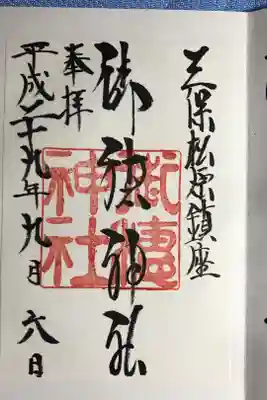 三保松原鎮座
御穂神社
奉拝
平成二十九年九月六日
御穂
神社